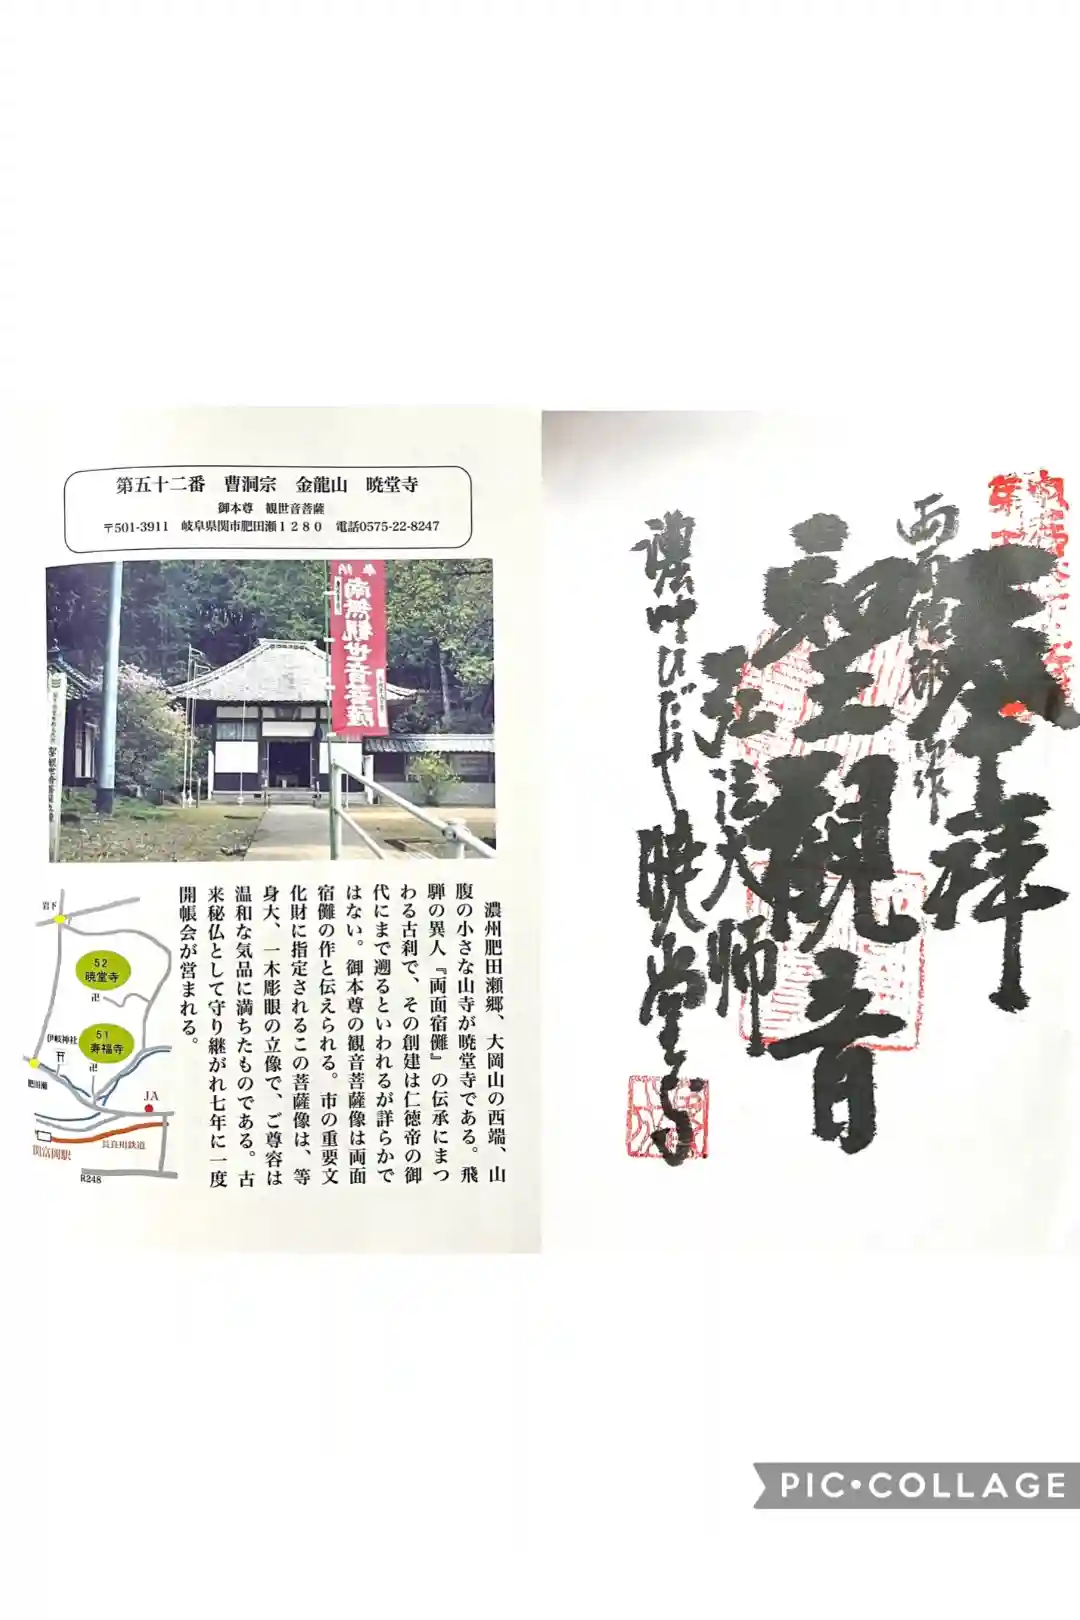 第五十二番　曹洞宗　金龍山　暁堂寺
御本尊　観世音菩薩
〒501-3911　岐阜県関市肥田瀬１２８０　電話0575-22-8247
奉納
南無観世音菩薩
濃州肥田瀬郷、大岡山の西端、山
腹の小さな山寺が暁堂寺である。飛
騨の異人『両面宿儺』の伝承にまつ
わる古刹で、その創建は仁徳帝の御
代にまで遡るといわれるが詳らかで
はない。御本尊の観音菩薩像は両面
宿儺の作と伝えられる。市の重要文
化財に指定されるこの菩薩像は、等
身大、一木彫眼の立像で、ご尊容は
温和な気品に満ちたものである。古
来秘仏として守り継がれ七年に一度
開帳会が営まれる。
岩下
52
暁堂寺
卍
51
寿福寺
卍
伊岐神社
肥田瀬
JA
長良川鉄道
関富岡駅
R248
奉拝
聖観音
弘法大師
暁堂寺
PIC•COLLAGE